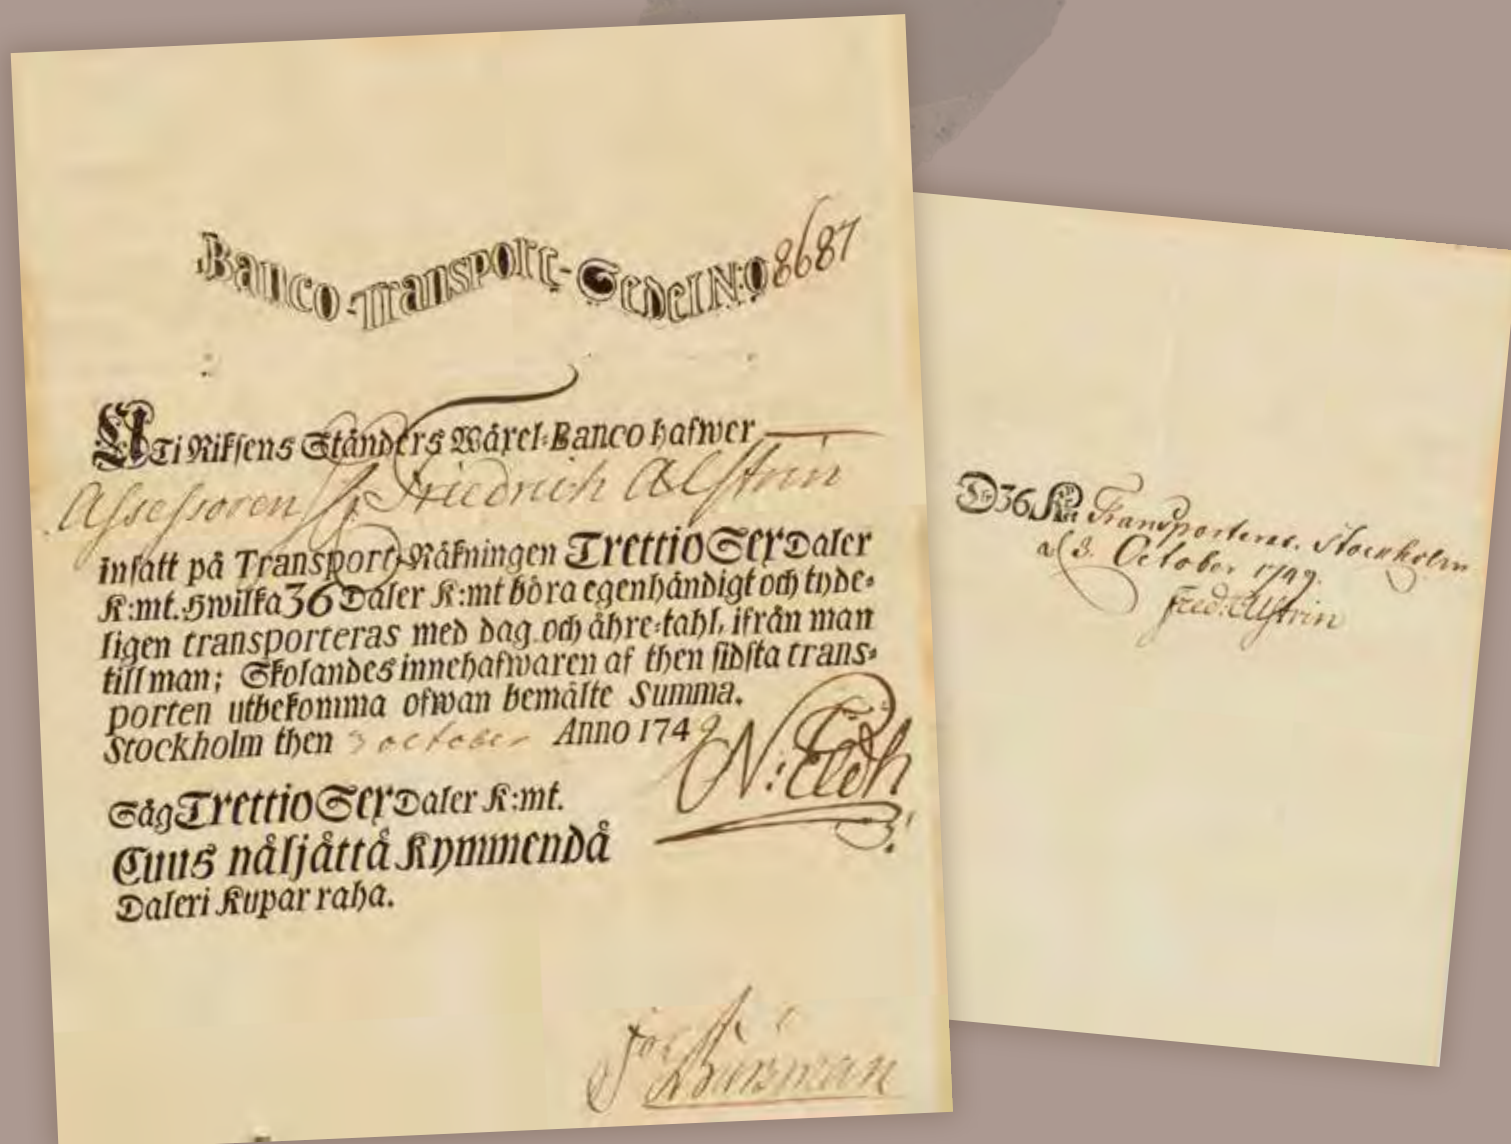 Banco-Transport-Sedel N:o 8687
UTi Riksens Ständers Wäxel-Banco hafwer
Assessoren H Friedrich Alstrin
insatt på Transport-Räkningen TrettioSexDaler
K:mt. Hwilka 36 Daler K:mt böra egenhändigt och tyde-
ligen transporteras med dag och åhre-tahl, ifrån man
till man; Skolandes innehafwaren af then sidsta trans-
porten utbekomma ofwan bemälte Summa.
Stockholm then 3 october Anno 1749
N: Eldh
Säg TrettioSexDaler K:mt.
Cuus näljättä Kymmendä
Daleri Kupar raha.
Burman
D:r 36 K:mt Transporteras. Stockholm
d. 3. October 1749.
Fred: Alstrin